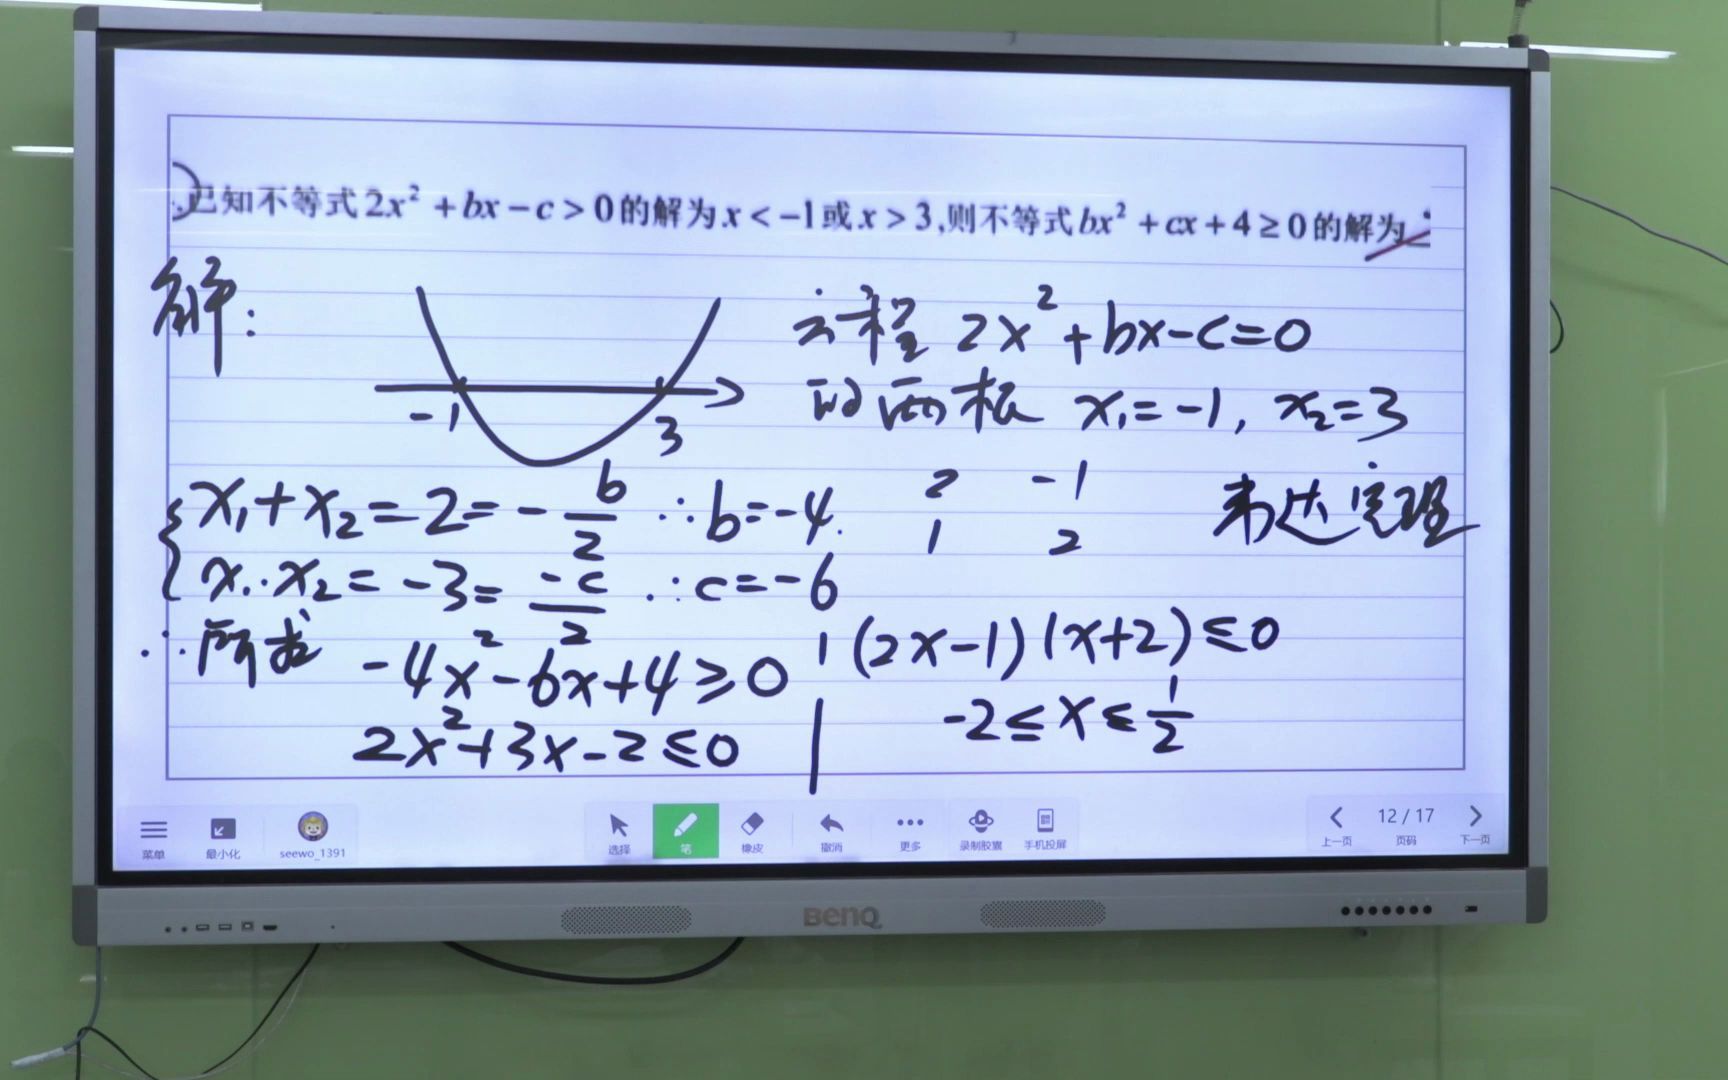 已知不等式2x²+bx-c>0的解为x<-1或x>3,则不等式bx²+cx+4≥0的解为
解:
方程 2x²+bx-c=0
的两根 x₁=-1, x₂=3
-1 3
x₁+x₂=2=-b/2 ∴b=-4.
2 -1
韦达定理
1 2
x₁·x₂=-3=-c/2 ∴c=-6
∴所求 -4x²-6x+4≥0
(2x-1)(x+2)≤0
2x²+3x-2≤0
-2≤x≤1/2
菜单 最小化 seewo_1391 选择 笔 橡皮 撤消 更多 录制胶囊 手机投屏 上一页 12 / 17 页码 下一页
BenQ